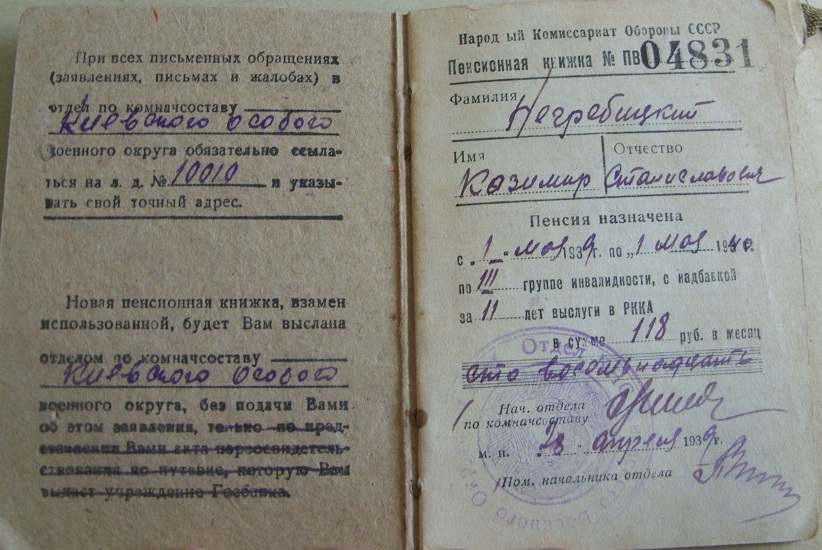 При всех письменных обращениях
(заявлениях, письмах и жалобах) в
отдел по комначсоставу
Киевского особого
военного округа обязательно ссыла-
ться на л. д. № 10010 и указы-
вать свой точный адрес.
Новая пенсионная книжка, взамен
использованной, будет Вам выслана
отделом по комначсоставу
Киевского особого
военного округа, без подачи Вами
об этом заявления, только по пред-
ставлении Вами акта переосвидетель-
ствования по путевке, которую Вам
выдаст учреждение Госбанка.
Народ ый Комиссариат Обороны СССР
Пенсионная книжка № ПВ 04831
Фамилия
Негребицкий
Имя Отчество
Казимир Станиславович
Пенсия назначена
с „1“ мая 1939г. по „1“ мая 1940г.
по III группе инвалидности, с надбавкой
за 11 лет выслуги в РККА
в сумме 118 руб. в месяц
сто восемьнадцать
Нач. отдела
по комначсоставу
м. п. 28 апреля 1939г
Пом. начальника отдела
Отдел